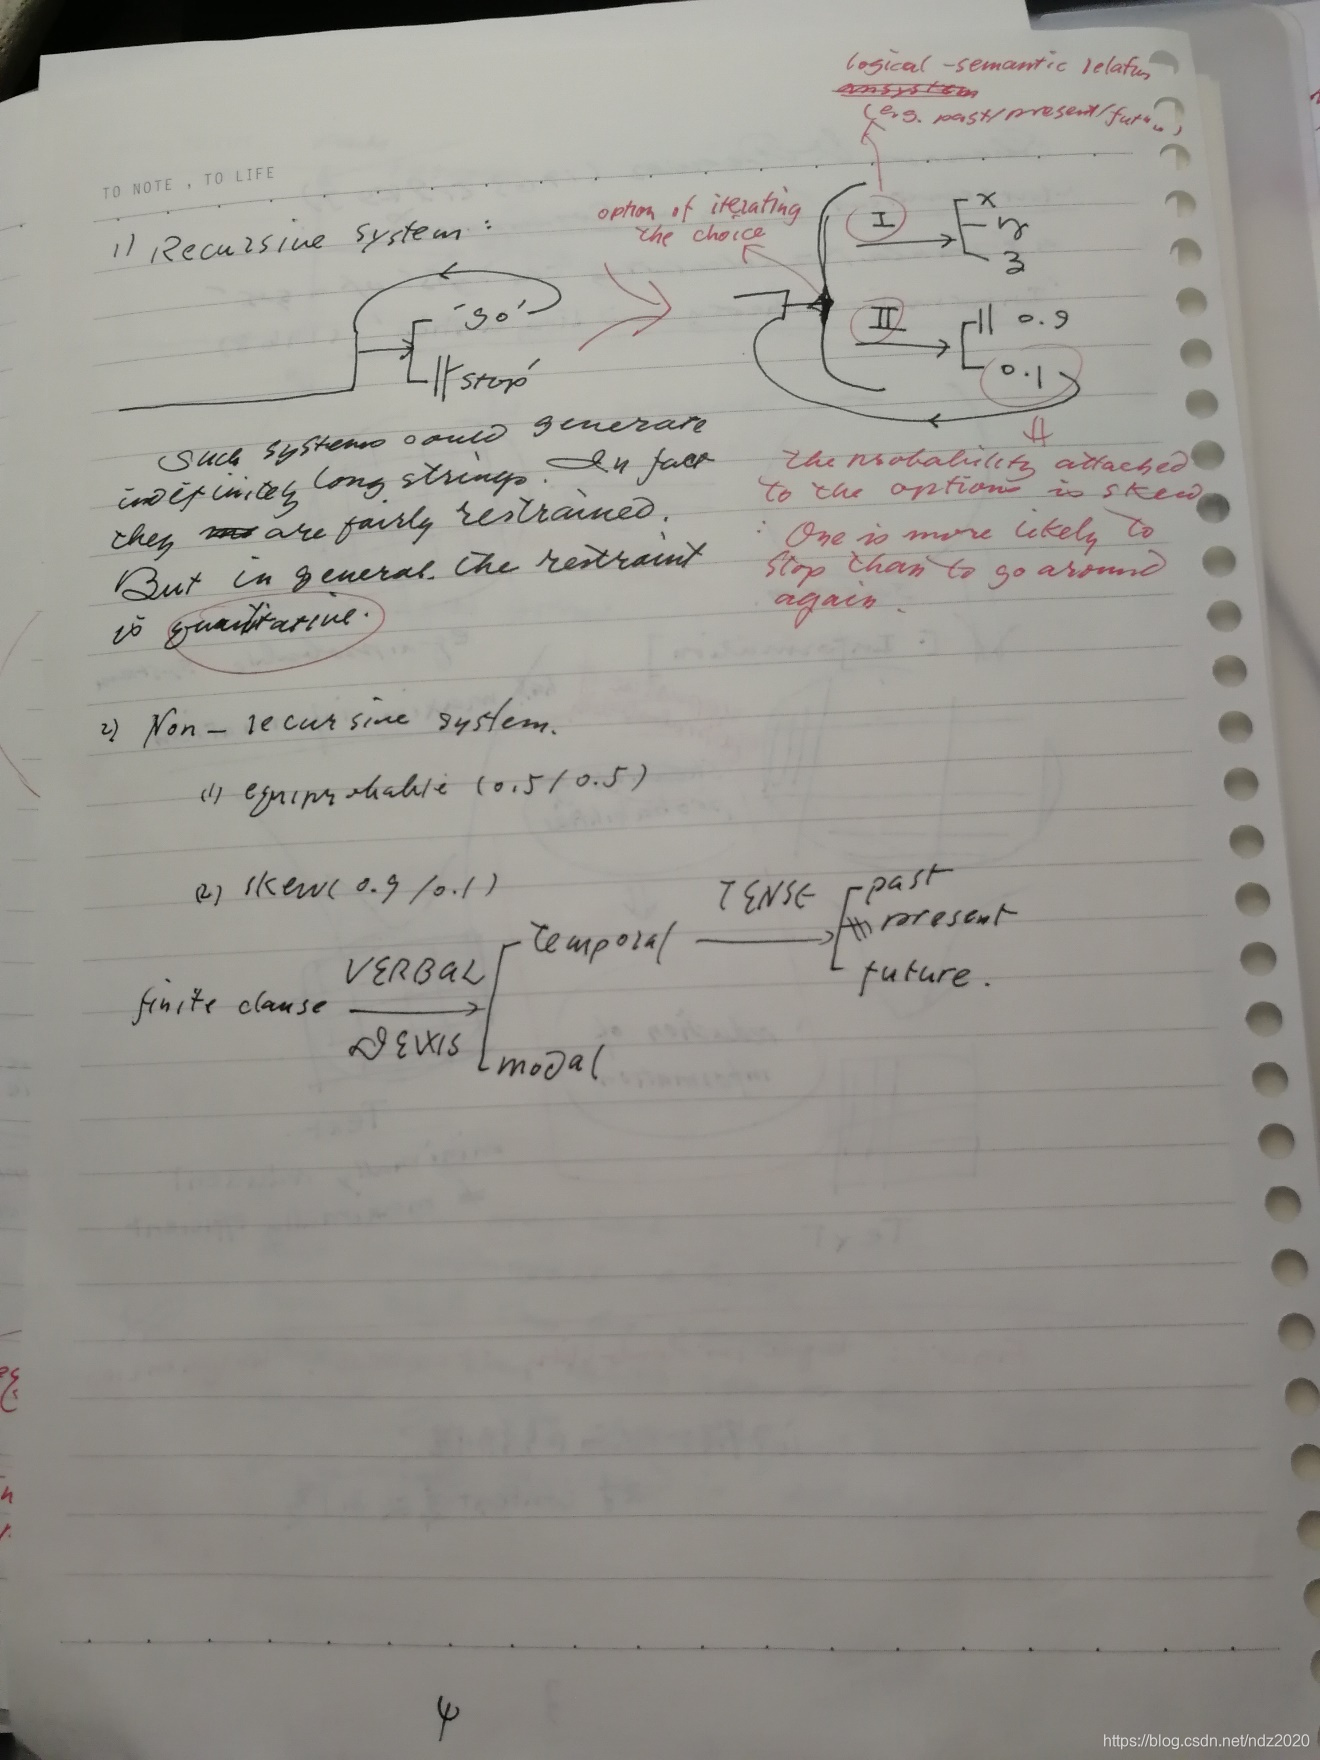 logical-semantic relation
(e.g. past/present/future)
TO NOTE , TO LIFE
1) Recursive system:
option of iterating
the choice
I
x
y
z
'go'
'stop'
II
0.9
0.1
Such systems could generate
indefinitely long strings. In fact
they are fairly restrained.
But in general. the restraint
is quantitative.
the probability attached
to the options is skew
: One is more likely to
stop than to go around
again.
2) Non-recursive system.
(1) equiprobable (0.5/0.5)
(2) skew (0.9/0.1)
finite clause
VERBAL
DEIXIS
temporal
modal
TENSE
past
present
future.
4
https://blog.csdn.net/ndz2020